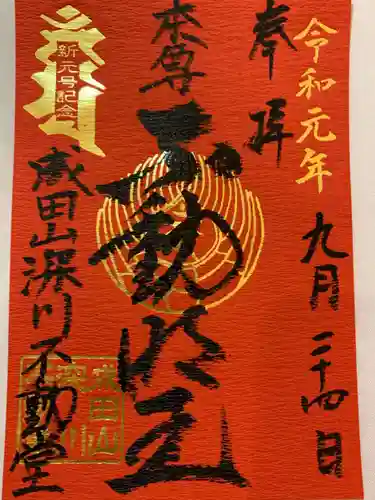 令和元年
九月二十四日
奉拝
本尊
不動明王
新元号記念
成田山深川不動堂
成田山
深川